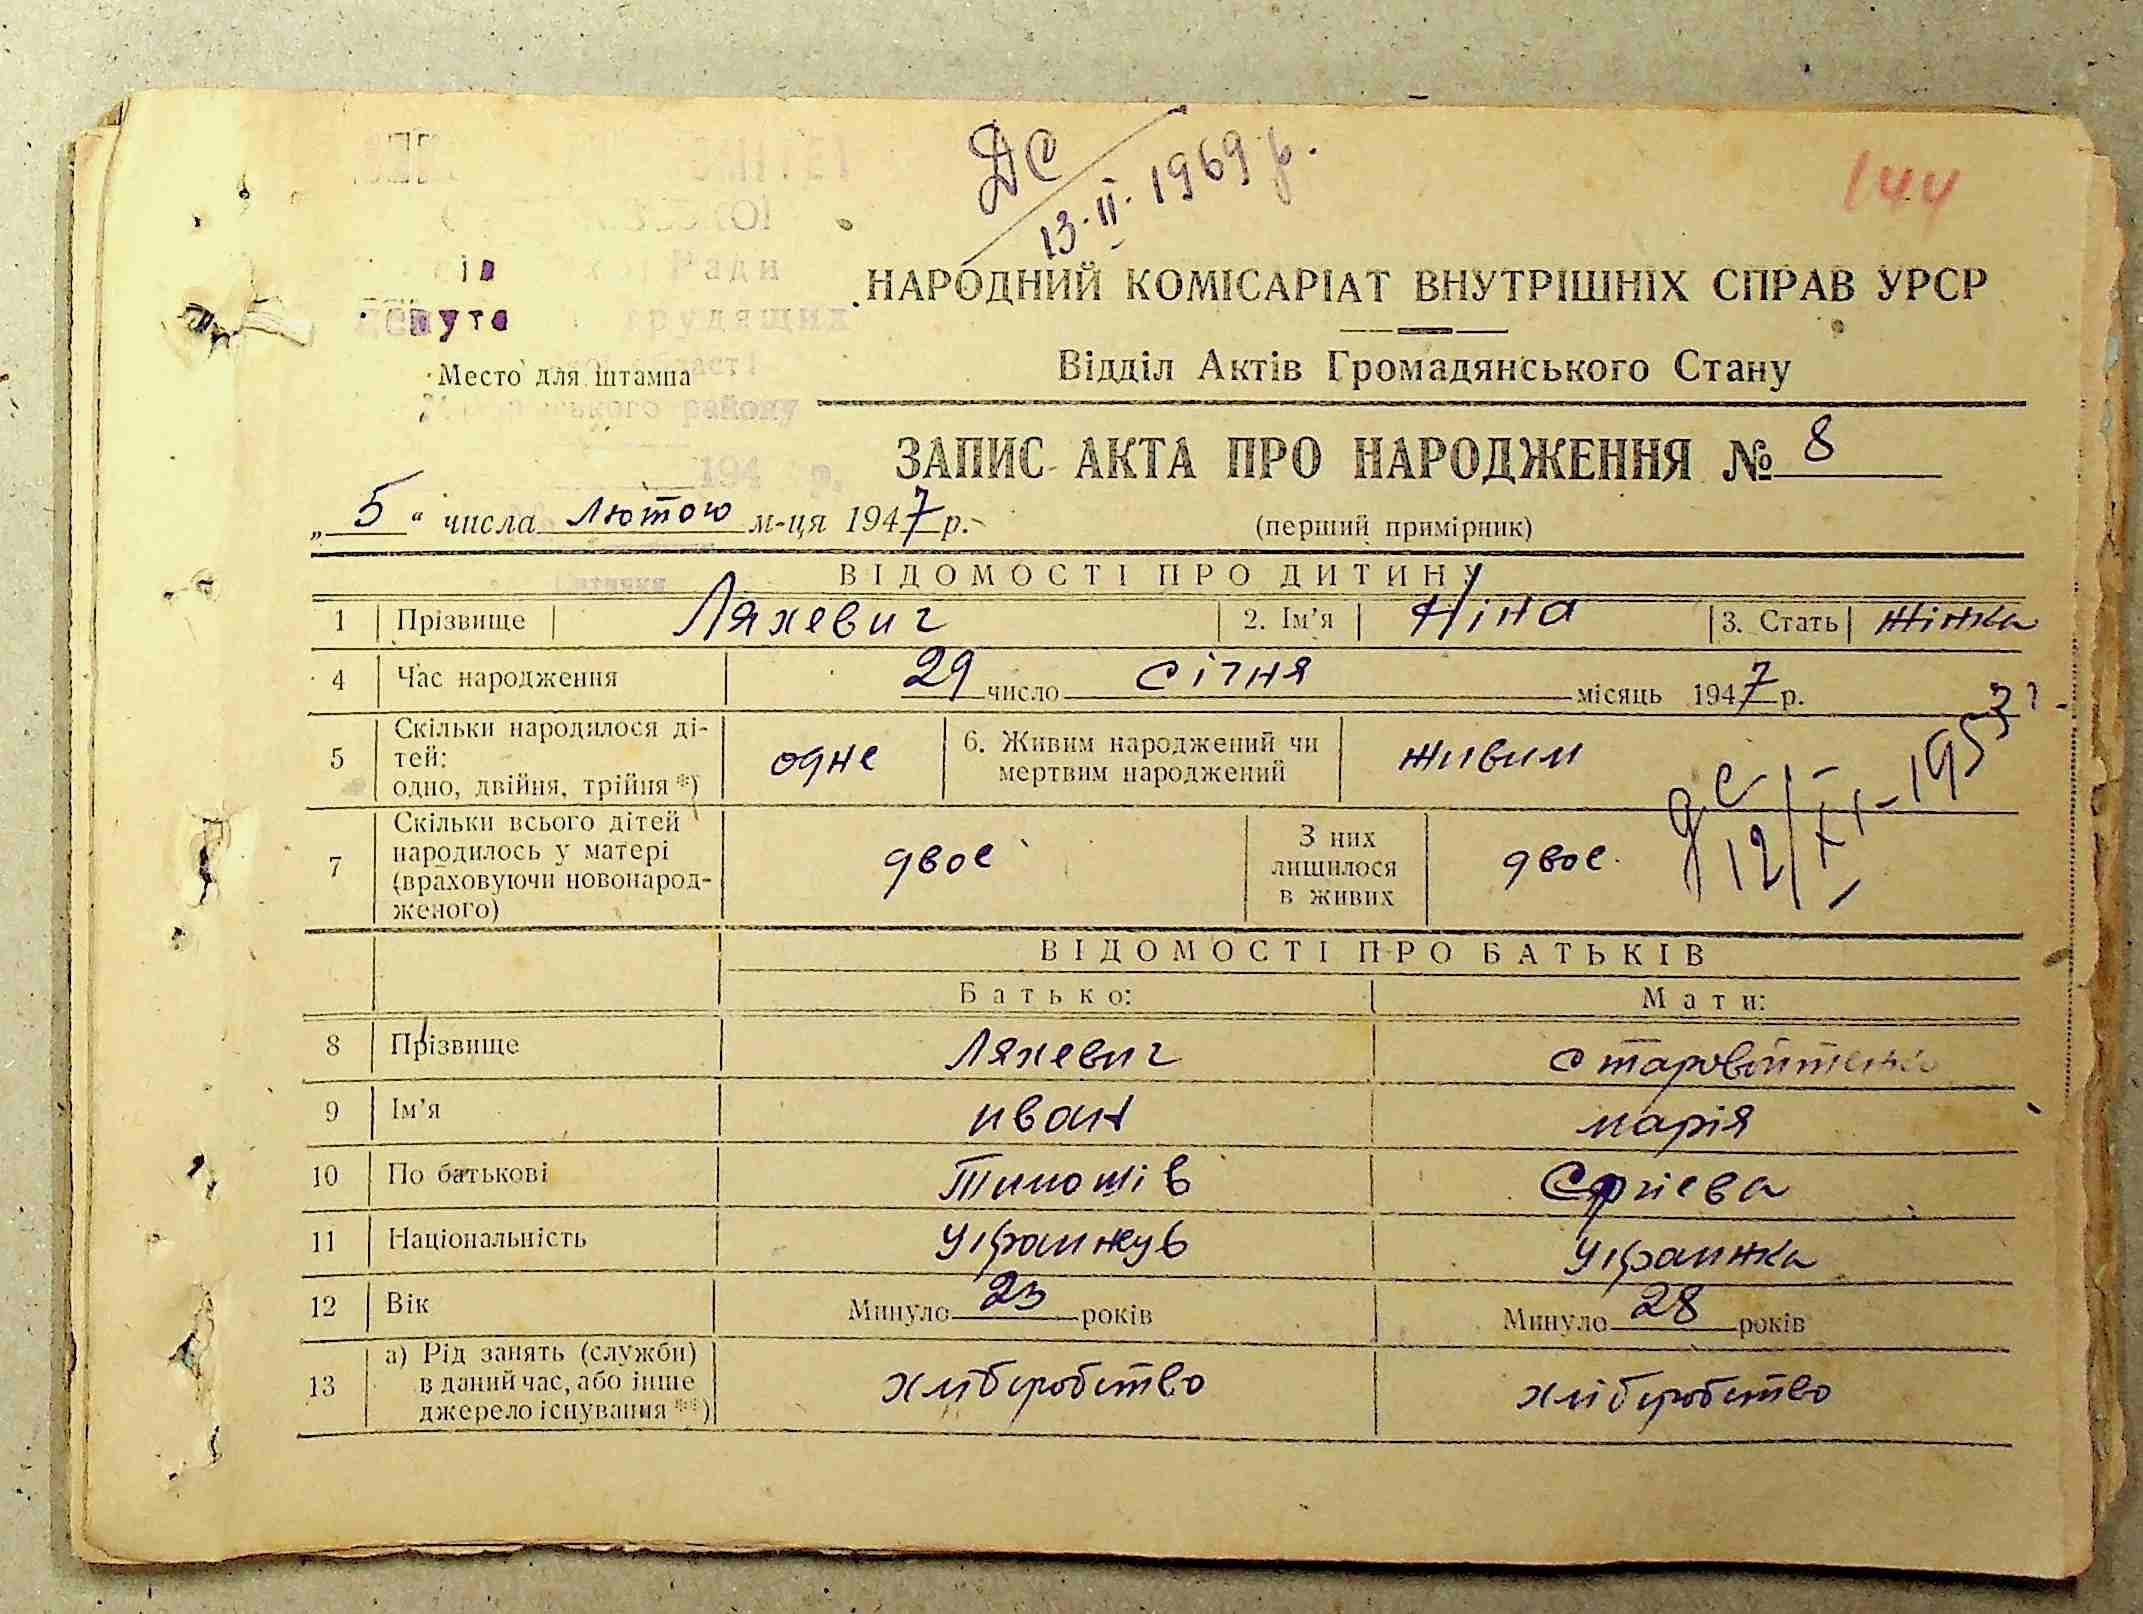 ДС
13·II·1969 р.
144
Ради
трудящих
НАРОДНИЙ КОМІСАРІАТ ВНУТРІШНІХ СПРАВ УРСР
Место для штампа
Відділ Актів Громадянського Стану
ського району
ЗАПИС АКТА ПРО НАРОДЖЕННЯ № 8
194 р.
„5“ числа Лютого м-ця 1947 р.
(перший примірник)
ВІДОМОСТІ ПРО ДИТИНУ
1 Прізвище Ляхевич 2. Ім’я Ніна 3. Стать жінка
4 Час народження 29 число січня місяць 1947 р.
5 Скільки народилося ді-
тей:
одно, двійня, трійня *) одне 6. Живим народжений чи
мертвим народжений живим
12/XI-1953
7 Скільки всього дітей
народилось у матері
(враховуючи новонарод-
женого) двое З них
лишилося
в живих двое
ВІДОМОСТІ ПРО БАТЬКІВ
Батько: Мати:
8 Прізвище Ляхевич
9 Ім’я иван марія
10 По батькові Тимошів
11 Національність Украинка
12 Вік Минуло 23 років Минуло 28 років
13 а) Рід занять (служби)
в даний час, або інше
джерело існування **) хліборобство хліборобство